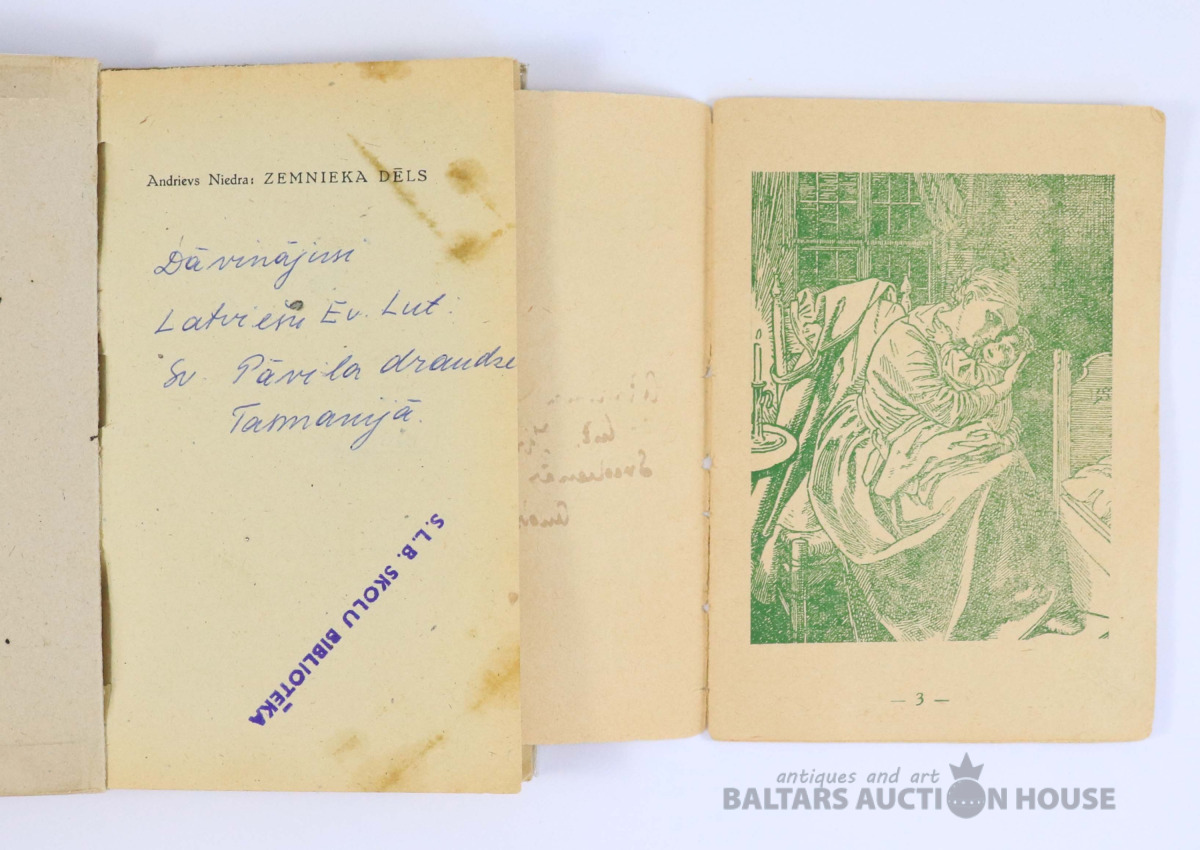 Andrievs Niedra: ZEMNIEKA DĒLS
Dāvinājusi
Latviešu Ev. Lut.
Sv. Pāvila draudze
Tasmanijā.
S.L.B. SKOLU BIBLIOTĒKA
— 3 —
antiques and art
BALTARS AUCTION HOUSE